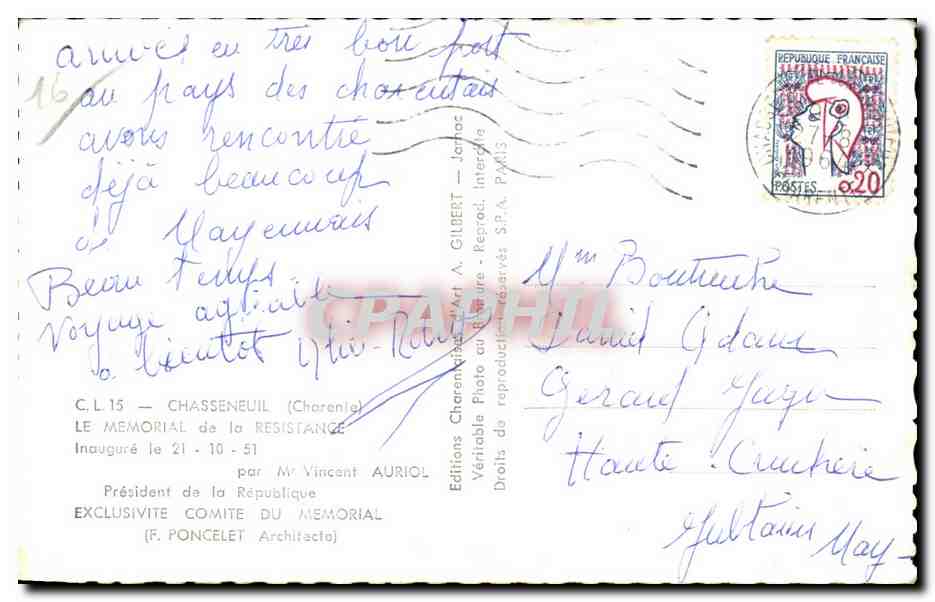 arrivés en très bon port
au pays des charentais
avons rencontré
déjà beaucoup
de Mayennais
Beau temps
Voyage agréable
a bientot
16
C.L.15 — CHASSENEUIL (Charente)
LE MEMORIAL de la RESISTANCE
Inauguré le 21 - 10 - 51
par Mr Vincent AURIOL
Président de la République
EXCLUSIVITE COMITE DU MEMORIAL
(F. PONCELET Architecte)
Editions Charentaises d'Art A. GILBERT — Jarnac
Véritable Photo au Bromure - Reprod. Interdite
Droits de reproduction réservés S.P.A. PARIS
CPAPHIL
REPUBLIQUE FRANÇAISE
POSTES 0.20
Daniel Adam
Gerard
Haute
May-